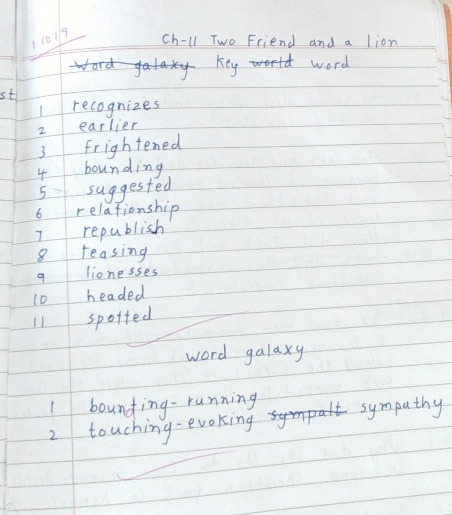 1·10·19
Ch-11 Two Friend and a lion
word galaxy Key world word
st
1 recognizes
2 earlier
3 frightened
4 bounding
5 suggested
6 relationship
7 republish
8 teasing
9 lionesses
10 headed
11 spotted
word galaxy
1 bounding - running
2 touching - evoking sympalt sympathy